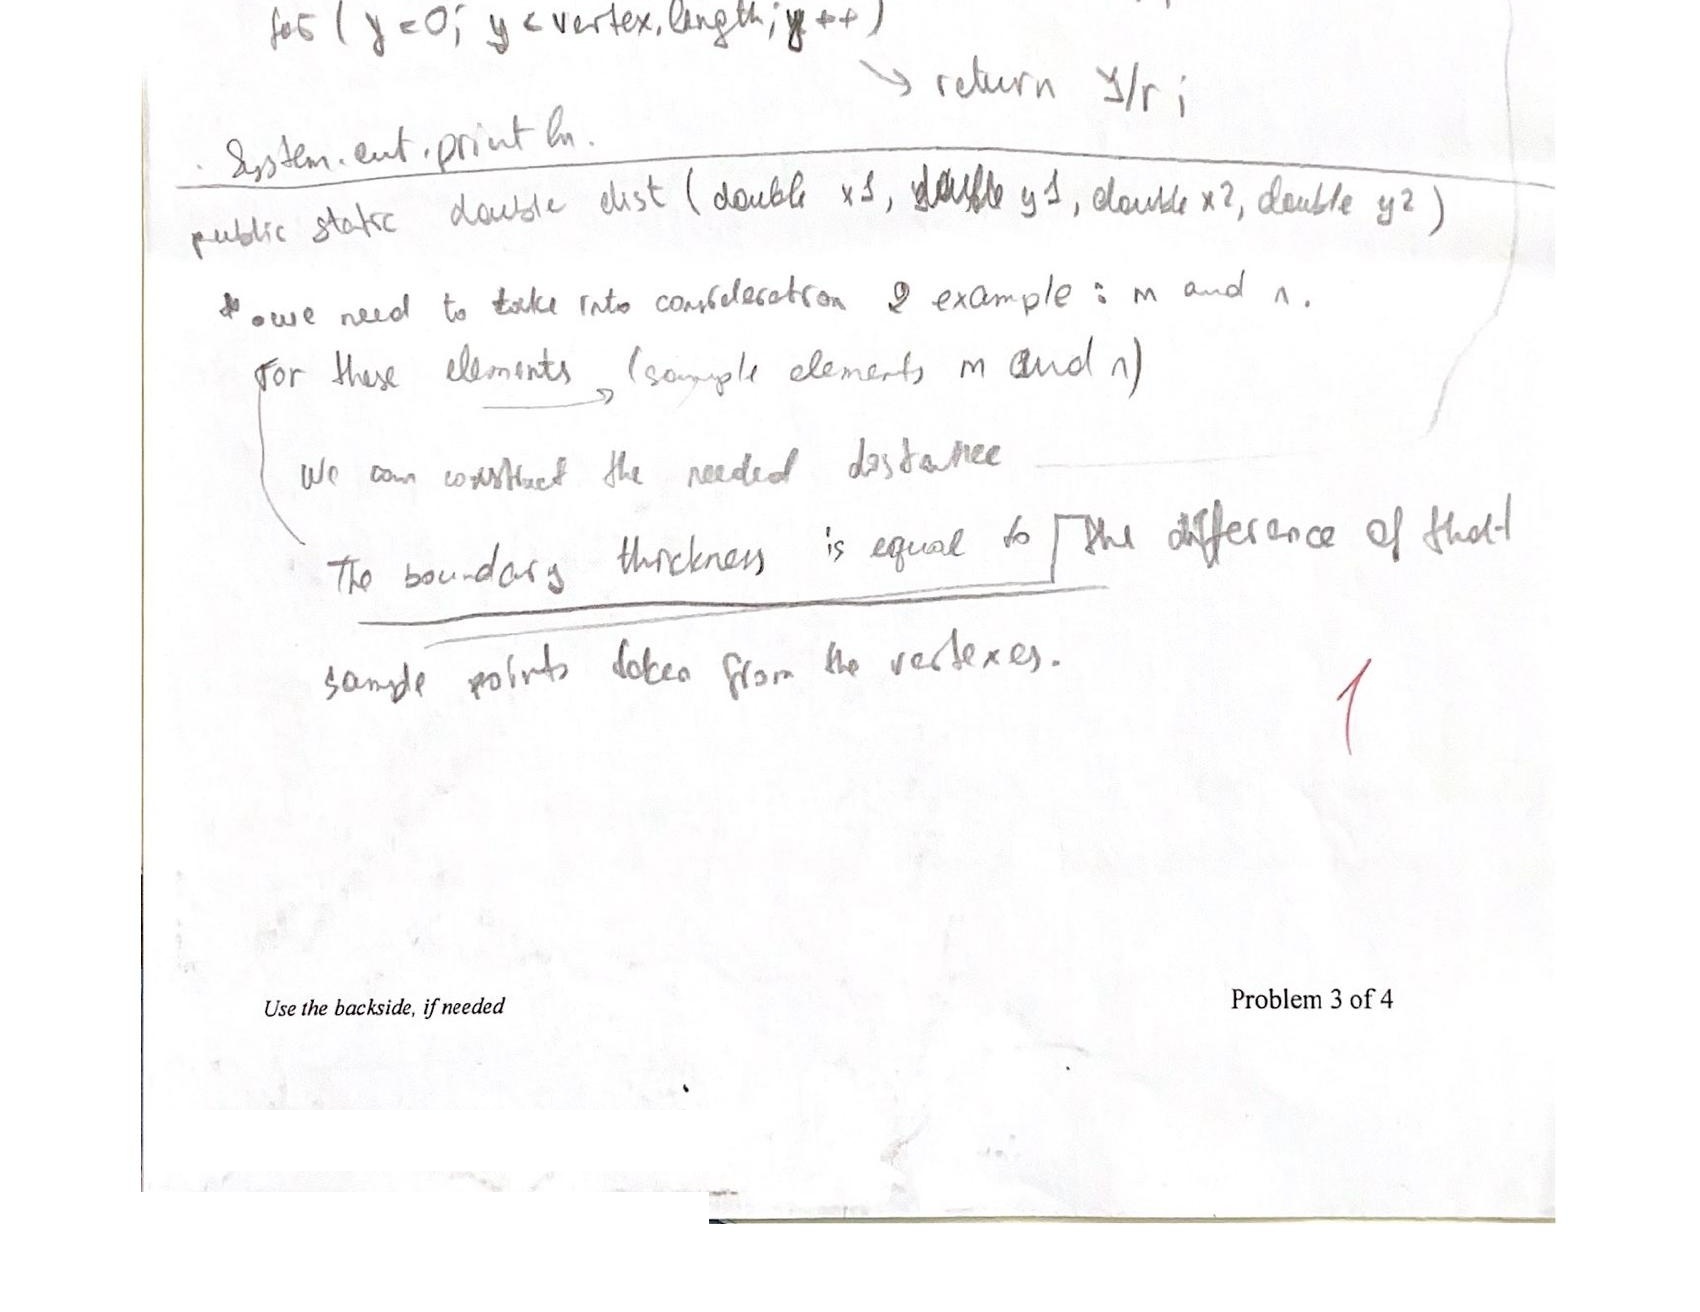 for ( y = 0; y < vertex.length; y ++ )
→ return y/r ;
. System.out.println.
public static double dist ( double x1, double y1, double x2, double y2 )
* . we need to take into consideration 2 example : m and n .
For these elements → (sample elements m and n)
We can construct the needed distance
The boundary thickness is equal to the difference of that
sample points taken from the vertexes.
1
Use the backside, if needed
Problem 3 of 4